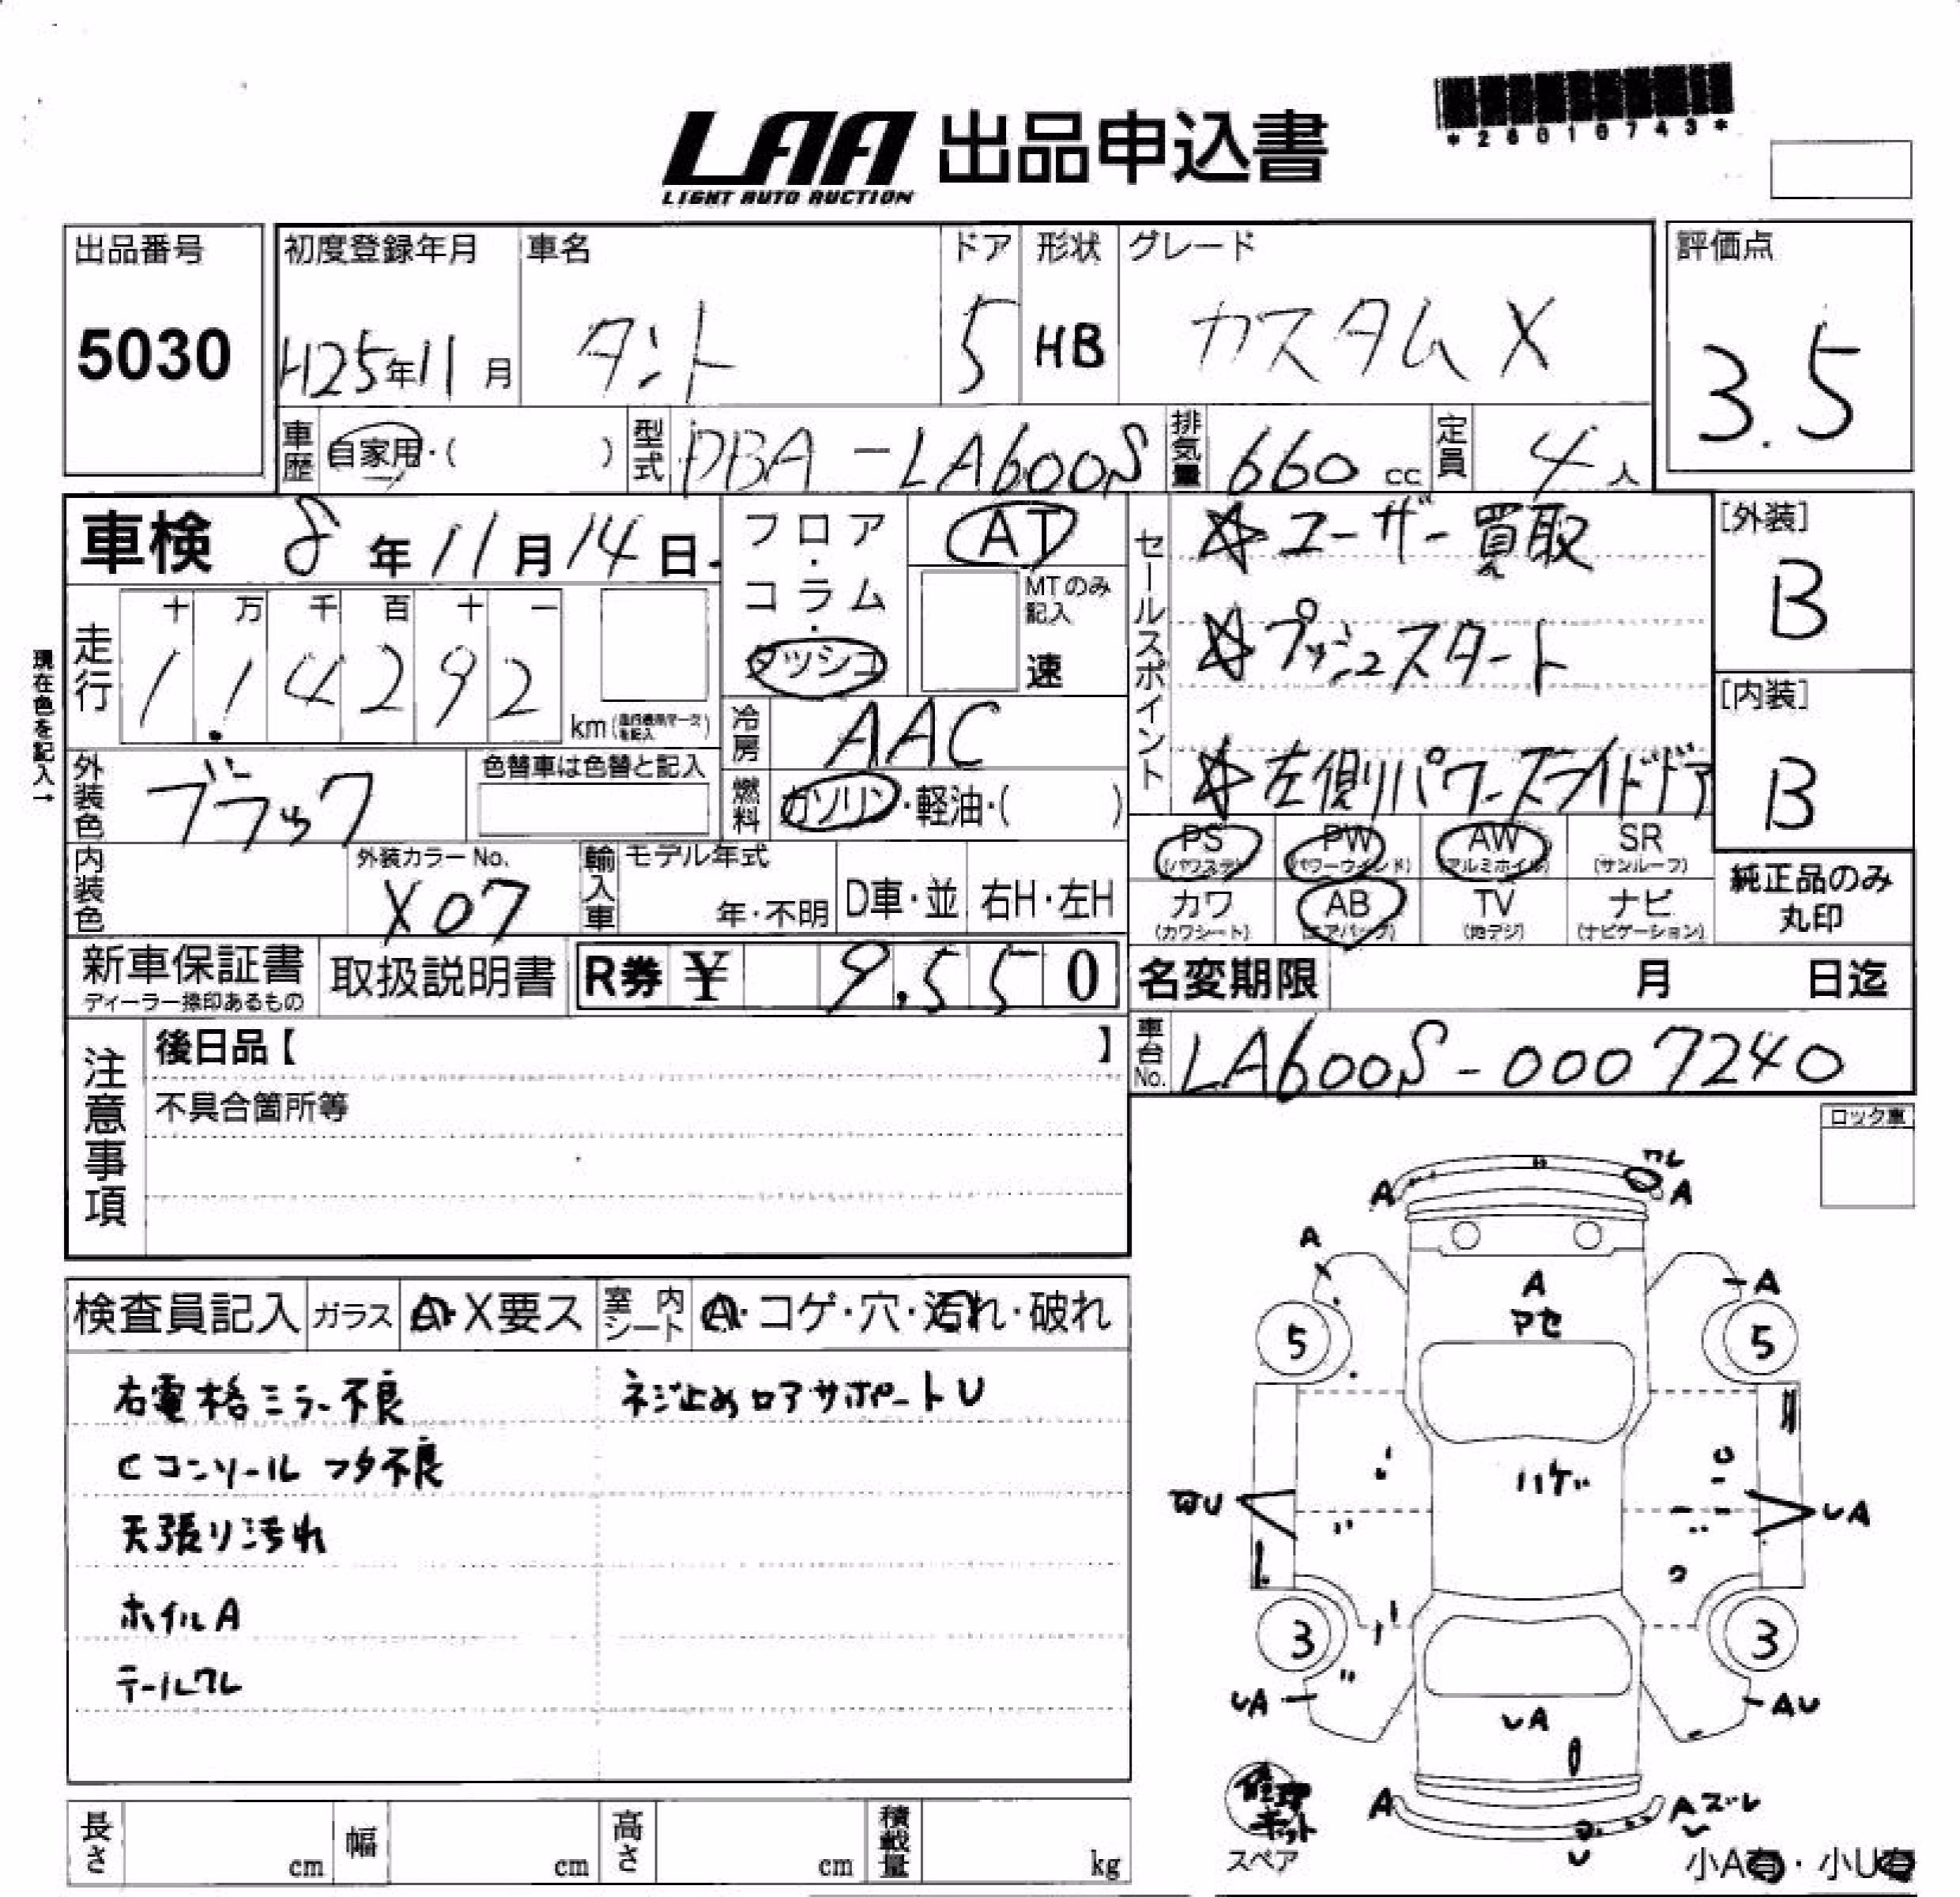 LAA 出品申込書
LIGHT AUTO AUCTION
*26010743*
出品番号
5030
初度登録年月
H25年11月
車名
タント
ドア
5
形状
HB
グレード
カスタムX
評価点
3.5
車歴
自家用・( )
型式
DBA-LA600S
排気量
660 cc
定員
4人
車検 8年11月14日
フロア・コラム・ダッシュ
AT
MTのみ記入
速
セールスポイント
☆ユーザー買取
☆プッシュスタート
☆左側パワースライドドア
[外装]
B
[内装]
B
現在色を記入→
走行
十 万 千 百 十 一
1 1 4 2 9 2
km
冷房
AAC
外装色
ブラック
色替車は色替と記入
燃料
ガソリン・軽油・( )
PS (パワステ)
PW (パワーウインド)
AW (アルミホイル)
SR (サンルーフ)
カワ (カワシート)
AB (エアバッグ)
TV (地デジ)
ナビ (ナビゲーション)
純正品のみ丸印
内装色
外装カラーNo.
X07
輸入車
モデル年式
年・不明
D車・並
右H・左H
新車保証書
ディーラー捺印あるもの
取扱説明書
R券 ¥ 9,550
名変期限 月 日迄
車台No.
LA600S-0007240
注意事項
後日品【 】
不具合箇所等
ロック車
検査員記入
ガラス
A・X要ス
室内シート
A・コゲ・穴・汚れ・破れ
右電格ミラー不良
ネジ止めロアサポートU
Cコンソールフタ不良
天張り汚れ
ホイルA
テールワレ
ワレ
A
A
A
A
A
アセ
5
5
ハゲ
UA
3
3
UA
AU
UA
A
Aズレ
U
修理キット
スペア
小A有・小U有
長さ cm
幅 cm
高さ cm
積載量 kg